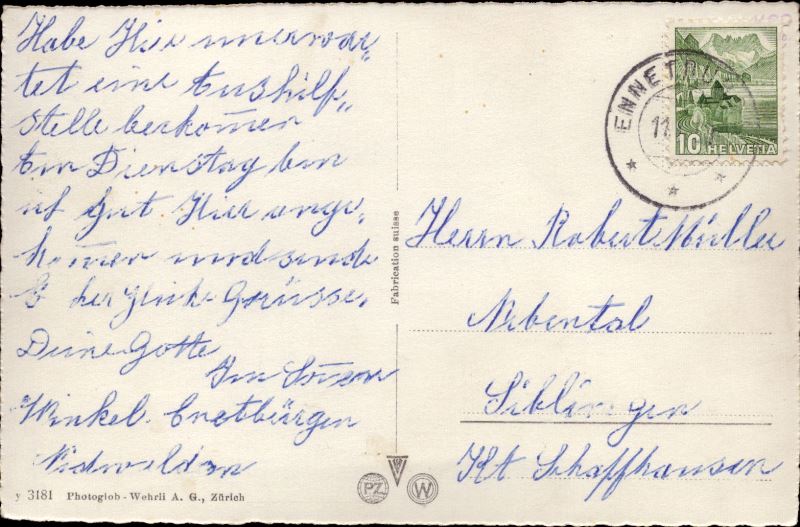 Habe Hier unerwar„
tet eine Aushilf„
stelle bekom̄en
Am Dienstag bin
ich gut Hier ange„
kom̄en und sende
herzliche Grüsse.
Deine Gotte
Im
Winkel. Enetbürgen
Nidwalden
y 3181 Photoglob-Wehrli A. G., Zürich
Fabrication suisse
PZ
W
ENNETBÜ
11.
10 HELVETIA
Herrn Robert Müller
Siblingen
Kt Schaffhausen